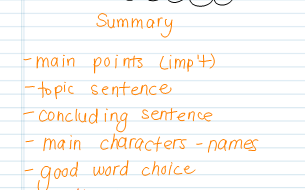 Summary
- main points (imp't)
- topic sentence
- concluding sentence
- main characters - names
- good word choice